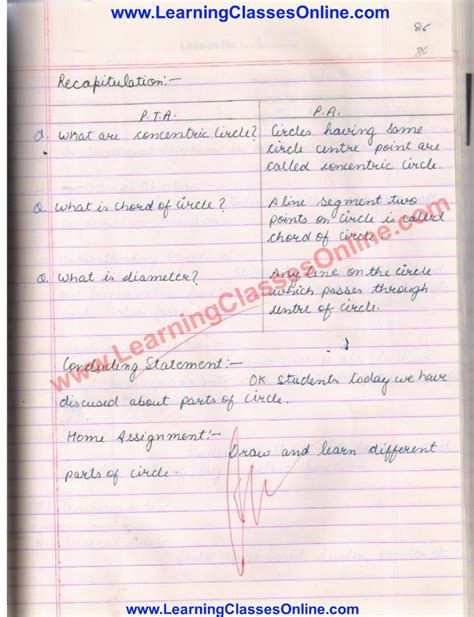 www.LearningClassesOnline.com
86
86
Recapitulation:-
P.T.A. P.A.
Q. What are concentric circle? Circles having same
circle centre point are
called concentric circle.
Q. What is chord of circle? A line segment two
points on circle is called
chord of circle.
Q. What is diameter? Any line on the circle
which passes through
centre of circle.
www.LearningClassesOnline.com
Concluding Statement:-
OK students today we have
discussed about parts of circle.
Home Assignment:-
Draw and learn different
parts of circle.
www.LearningClassesOnline.com